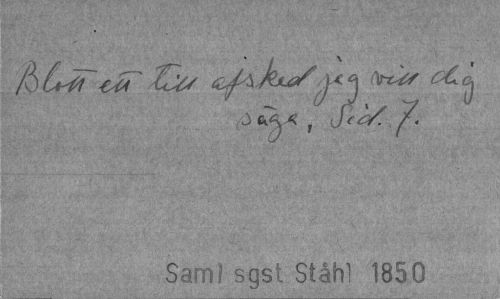 Blott ett till afsked jag vill dig
säga, Sid. 7.
Saml sgst Ståhl 1850